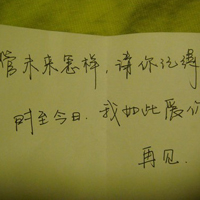 管未来怎样,请你记得
时至今日.我如此爱你
再见.